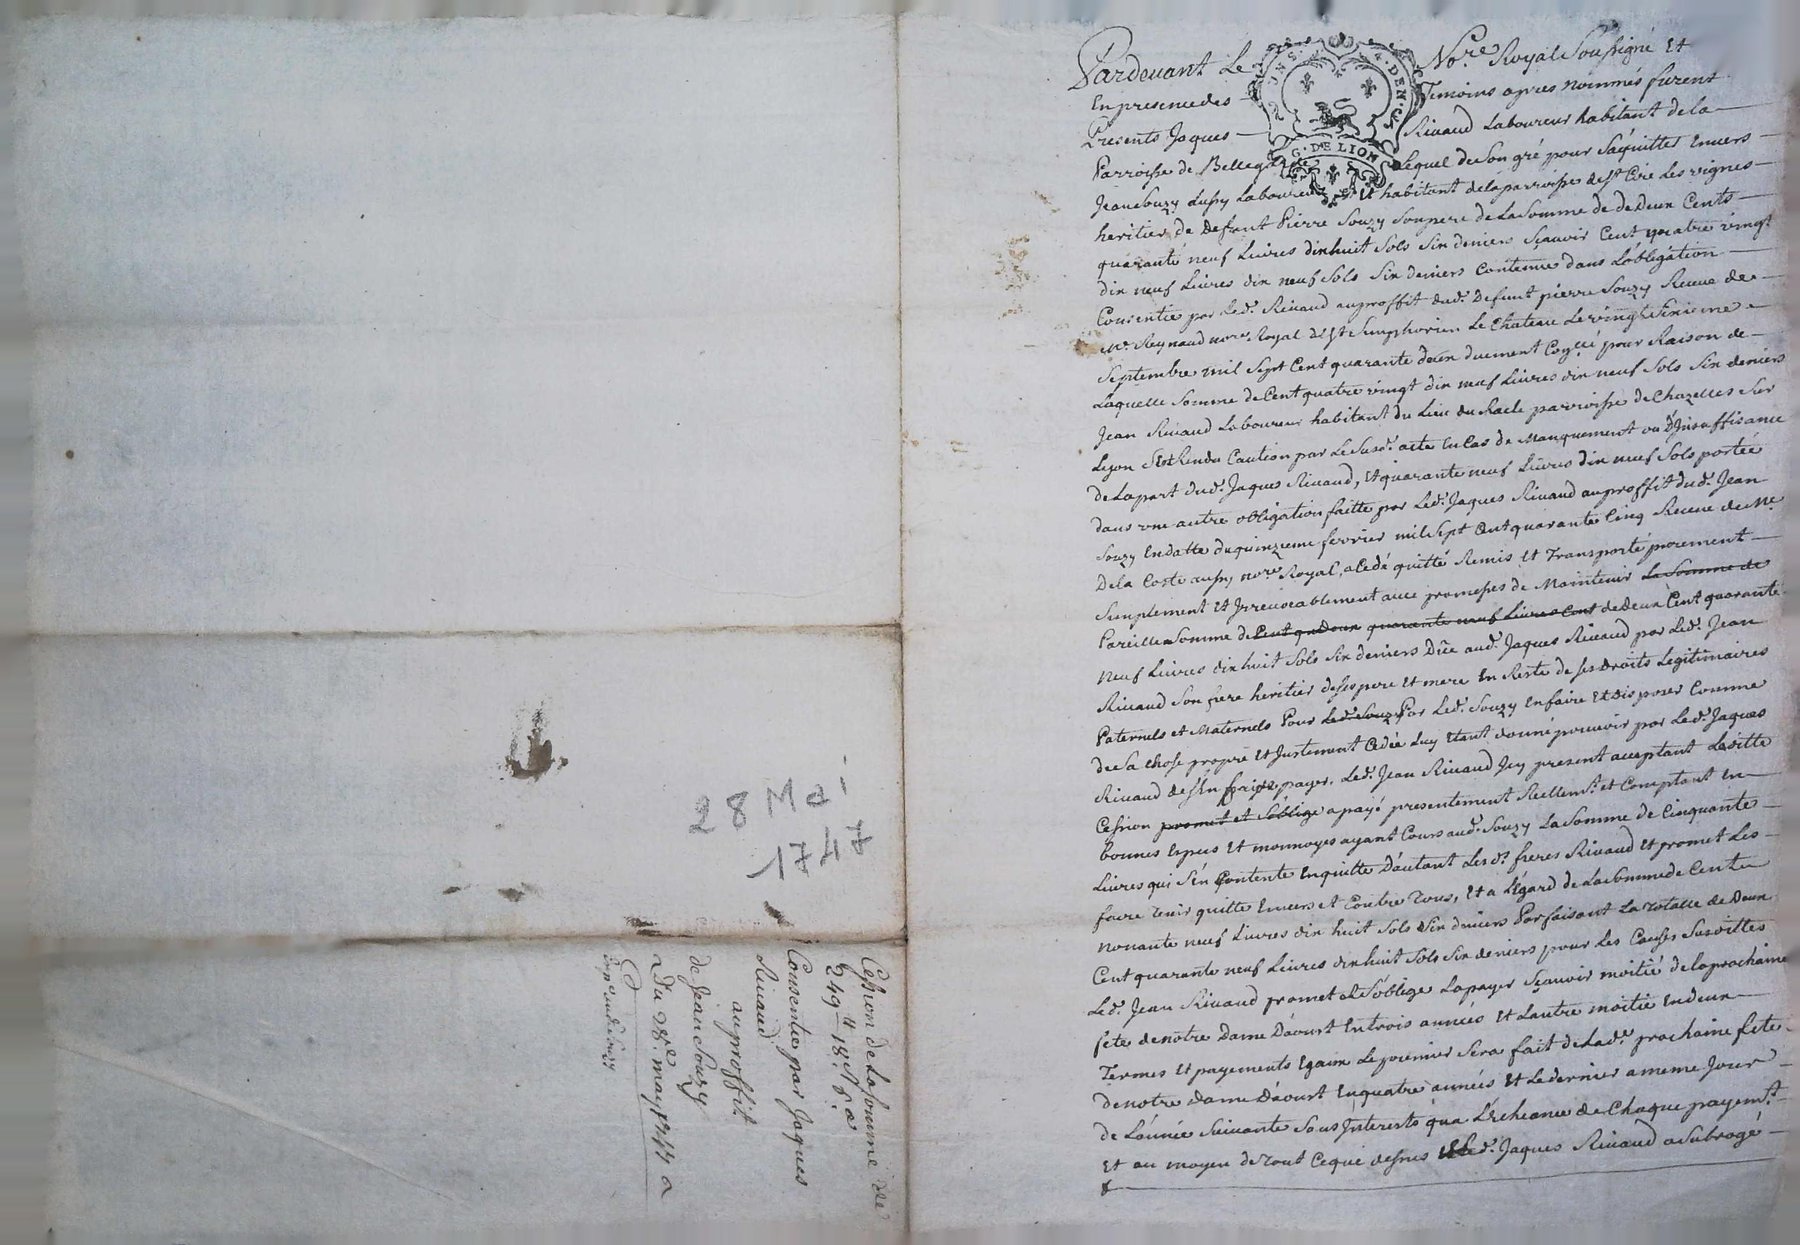 28 Mai
1747
Cession de la somme de
249 ₶ 18 s 6 d
Consentie par Jaques
Rivaud
au proffit
de Jean Souzy
Du 28e may 1747
Expedié Souzy
Pardevant Le No.re Royal Soussigné Et
En presence des Temoins apres nommés furent
Presents Jaques Rivaud Laboureur habitant de la
Parroisse de Bellegarde Lequel de Son gré pour S'aquitter Envers
Jean Souzy Aussy Laboureur Et habitant de la parroisse de St Cire Les vignes
heritier de Defunt Pierre Souzy Son pere de La Somme de de Deux Cents
quarante neuf Livres dixhuit Sols Six deniers Sçavoir Cent quatre vingt
dix neuf Livres dix neuf Sols Six deniers Contenue dans L'obligation
Consentie par Led. Rivaud au proffit dud. Defunt pierre Souzy Receue de
Me. Reynaud nore. Royal de St Simphorien Le Chateau Le vingt Sixieme
Septembre mil Sept Cent quarante deux duement Coñllé pour Raison de
Laquelle Somme de Cent quatre vingt dix neuf Livres dix neuf Sols Six deniers
Jean Rivaud Laboureur habitant du Lieu du parroisse de Chazelles Sur
Lyon S'est Rendu Caution par Le Susd. acte En Cas de Manquement ou D'Insuffisance
de La part dud. Jaques Rivaud, Et quarante neuf Livres dix neuf Sols portée
dans une autre obligation faitte par Led. Jaques Rivaud au proffit dud. Jean
Souzy En datte du quinzieme fevrier mil Sept Cent quarante Cinq Receue de Me.
De la Coste aussy nore. Royal, a Cedé quitté Remis Et Transporté purement
Simplement Et Irrevocablement avec promesses de Maintenir La Somme de
Pareille Somme de quarante neuf Livres Cent de Deux Cent quarante
Neuf Livres dix huit Sols Six deniers Düe aud. Jaques Rivaud par Led. Jean
Rivaud Son frere heritier de Ses pere Et mere En Reste de Ses Droits Legitimaires
Paternels et Maternels Pour Led. Souzy Par Led. Souzy En faire Et Disposer Comme
de Sa Chose propre Et Justement Cedée Luy Etant donné pouvoir par Led. Jaques
Rivaud de S'En faire payer, Led. Jean Rivaud Icy present acceptant Laditte
Cession promet et S'oblige a payé presentement Reellemt. et Comptant En
bonnes Especes Et monnoyes ayant Cours aud. Souzy La Somme de Cinquante
Livres qui S'en Contente En quitte D'autant Lesd. freres Rivaud Et promet Les
faire Tenir quitte Envers et Contre Tous, Et a L'Egard de La Somme de Cent
Nonante neuf Livres dix huit Sols Six deniers Parfaisant La Totalle de Deux
Cent quarante neuf Livres dix huit Sols Six deniers pour Les Causes Susdittes
Led. Jean Rivaud promet Et S'oblige La payer Sçavoir moitié de La prochaine
fete de notre Dame D'aoust En trois années Et L'autre moitié En deux
Termes Et payements Egaux Le premier Sera fait de Lad. prochaine fete
de notre Dame D'aoust En quatre années Et Le dernier a meme Jour
de L'année Suivante Sans Interests qu'a L'Echeance de Chaque payemt.
Et au moyen de Tout Ceque dessus Led. Jaques Rivaud a Subrogé
2 INS 4. DEN.
G. DE LION